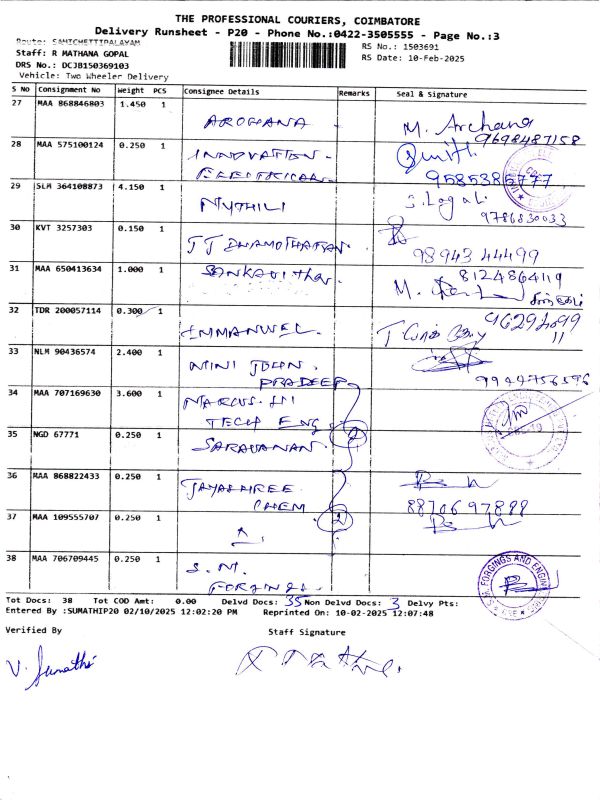 THE PROFESSIONAL COURIERS, COIMBATORE
Delivery Runsheet - P20 - Phone No.:0422-3505555 - Page No.:3
Route: SAMICHETTIPALAYAM
Staff: R MATHANA GOPAL
RS No.: 1503691
DRS No.: DCJB150369103
RS Date: 10-Feb-2025
Vehicle: Two Wheeler Delivery
S No Consignment No Weight PCS Consignee Details Remarks Seal & Signature
27 MAA 868846803 1.450 1 AROHANA M. Archana
9698487158
28 MAA 575100124 0.250 1 INNOVATION
ELECTRICAL 9585385777
29 SLM 364108873 4.150 1 MYTHILI S. Logal
9786830033
30 KVT 3257303 0.150 1 98943 44499
31 MAA 650413634 1.000 1 8124864119
32 TDR 200057114 0.300 1 IMMANUEL
33 NLM 90436574 2.400 1 MINI JOHN
PRADEEP 9944756596
34 MAA 707169630 3.600 1
TECH ENG
35 NGD 67771 0.250 1 SARAVANAN
36 MAA 868822433 0.250 1 JAYASHREE
CHEM 8870697888
37 MAA 109555707 0.250 1
38 MAA 706709445 0.250 1 S.M.
FORGINGS
Tot Docs: 38 Tot COD Amt: 0.00 Delvd Docs: 35 Non Delvd Docs: 3 Delvy Pts:
Entered By :SUMATHIP20 02/10/2025 12:02:20 PM Reprinted On: 10-02-2025 12:07:48
Verified By Staff Signature
V. Sumathi